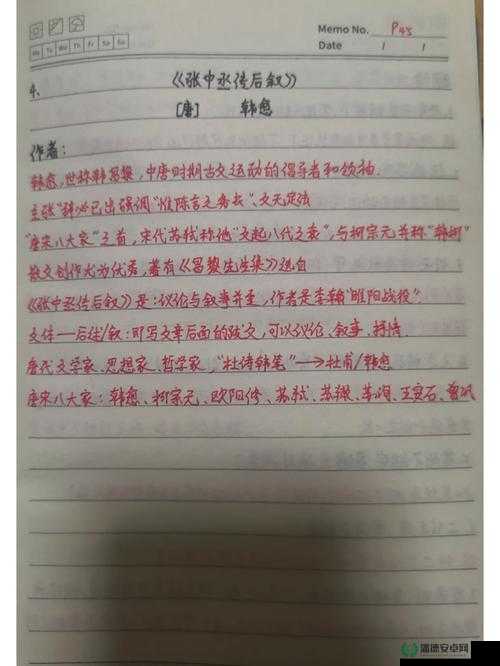 Memo No. P45
Mo Tu We Th Fr Sa Su
Date / /
4. 《张中丞传后叙》
[唐] 韩愈
作者：
韩愈，世称韩昌黎，中唐时期古文运动的倡导者和领袖.
主张"辞必己出强调"惟陈言之务去"，文无定法
"唐宋八大家"之首，宋代苏轼称他"文起八代之衰"，与柳宗元并称"韩柳"
散文创作尤为优秀，著有《昌黎先生集》选自
《张中丞传后叙》是：议论与叙事并重，作者是 "睢阳战役"
文体——后注/叙：即写文章后面的跋文，可以议论、叙事、抒情.
唐代文学家、思想家、哲学家，"杜诗韩笔"→杜甫/韩愈
唐宋八大家：韩愈、柳宗元、欧阳修、苏轼、苏辙、苏洵、王安石、曾巩
潘德安卓网